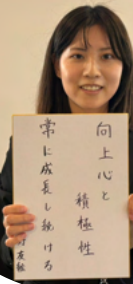 向上心と
積極性
常に成長し続ける
友